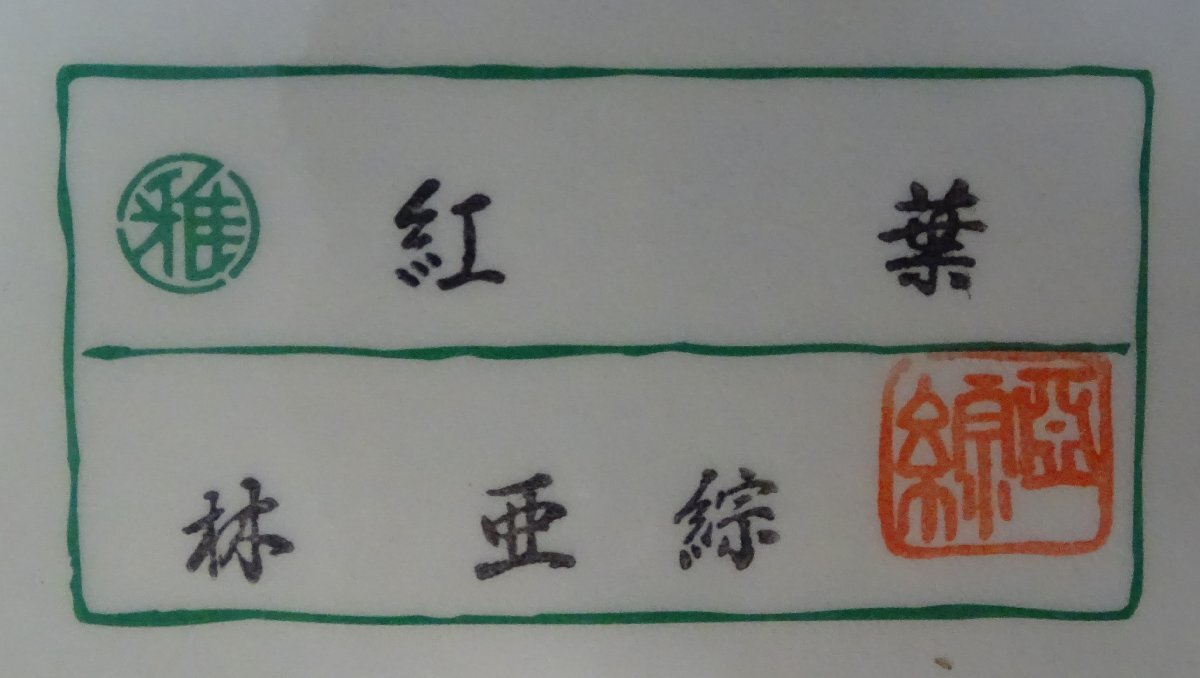 雅 紅葉
林亜綜
亞綜